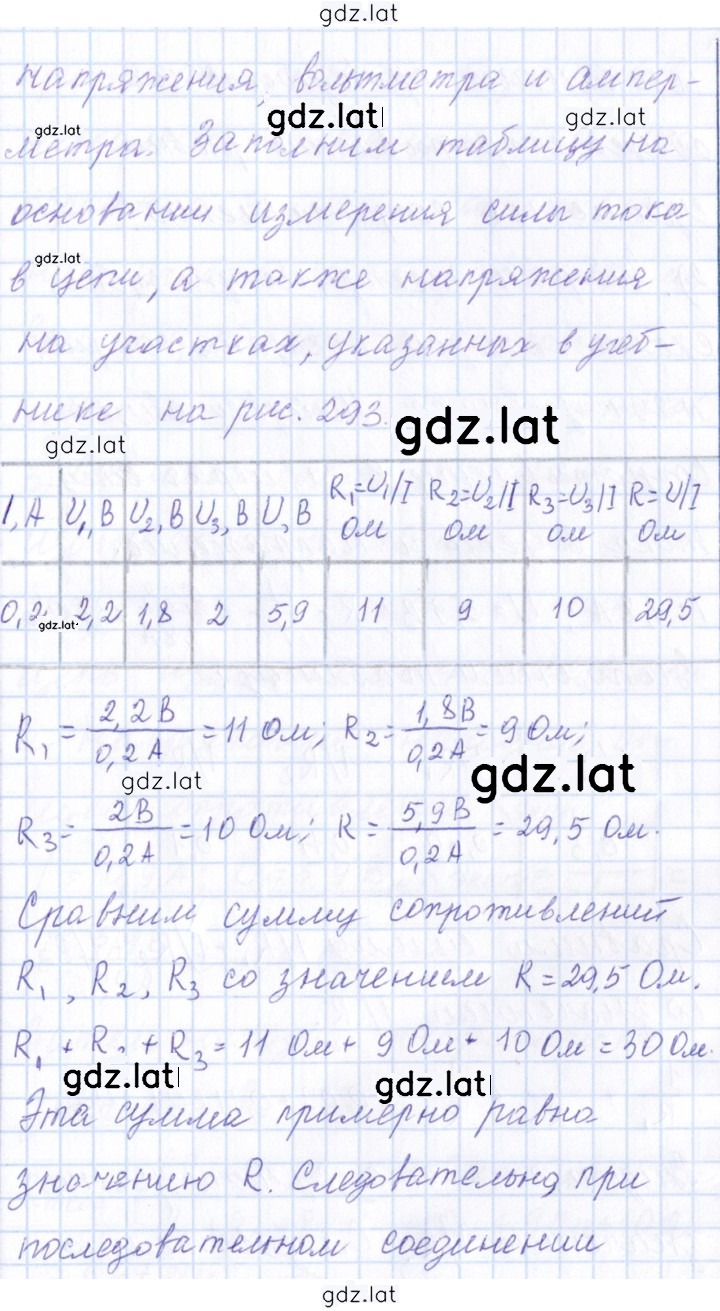 gdz.lat
напряжения, вольтметра и ампер-
gdz.lat gdz.lat
gdz.lat
метра. Заполним таблицу на
основании измерения силы тока
gdz.lat
в цепи, а также напряжения
на участках, указанных в учеб-
нике на рис. 293.
gdz.lat gdz.lat
I, А U₁, В U₂, В U₃, В U, В R₁=U₁/I Ом R₂=U₂/I Ом R₃=U₃/I Ом R=U/I Ом
0,2 2,2 1,8 2 5,9 11 9 10 29,5
gdz.lat
R₁ = 2,2 В / 0,2 А = 11 Ом; R₂ = 1,8 В / 0,2 А = 9 Ом;
gdz.lat gdz.lat
R₃ = 2 В / 0,2 А = 10 Ом; R = 5,9 В / 0,2 А = 29,5 Ом.
Сравним сумму сопротивлений
R₁, R₂, R₃ со значением R = 29,5 Ом.
R₁ + R₂ + R₃ = 11 Ом + 9 Ом + 10 Ом = 30 Ом.
gdz.lat gdz.lat
Эта сумма примерно равна
значению R. Следовательно, при
последовательном соединении
gdz.lat